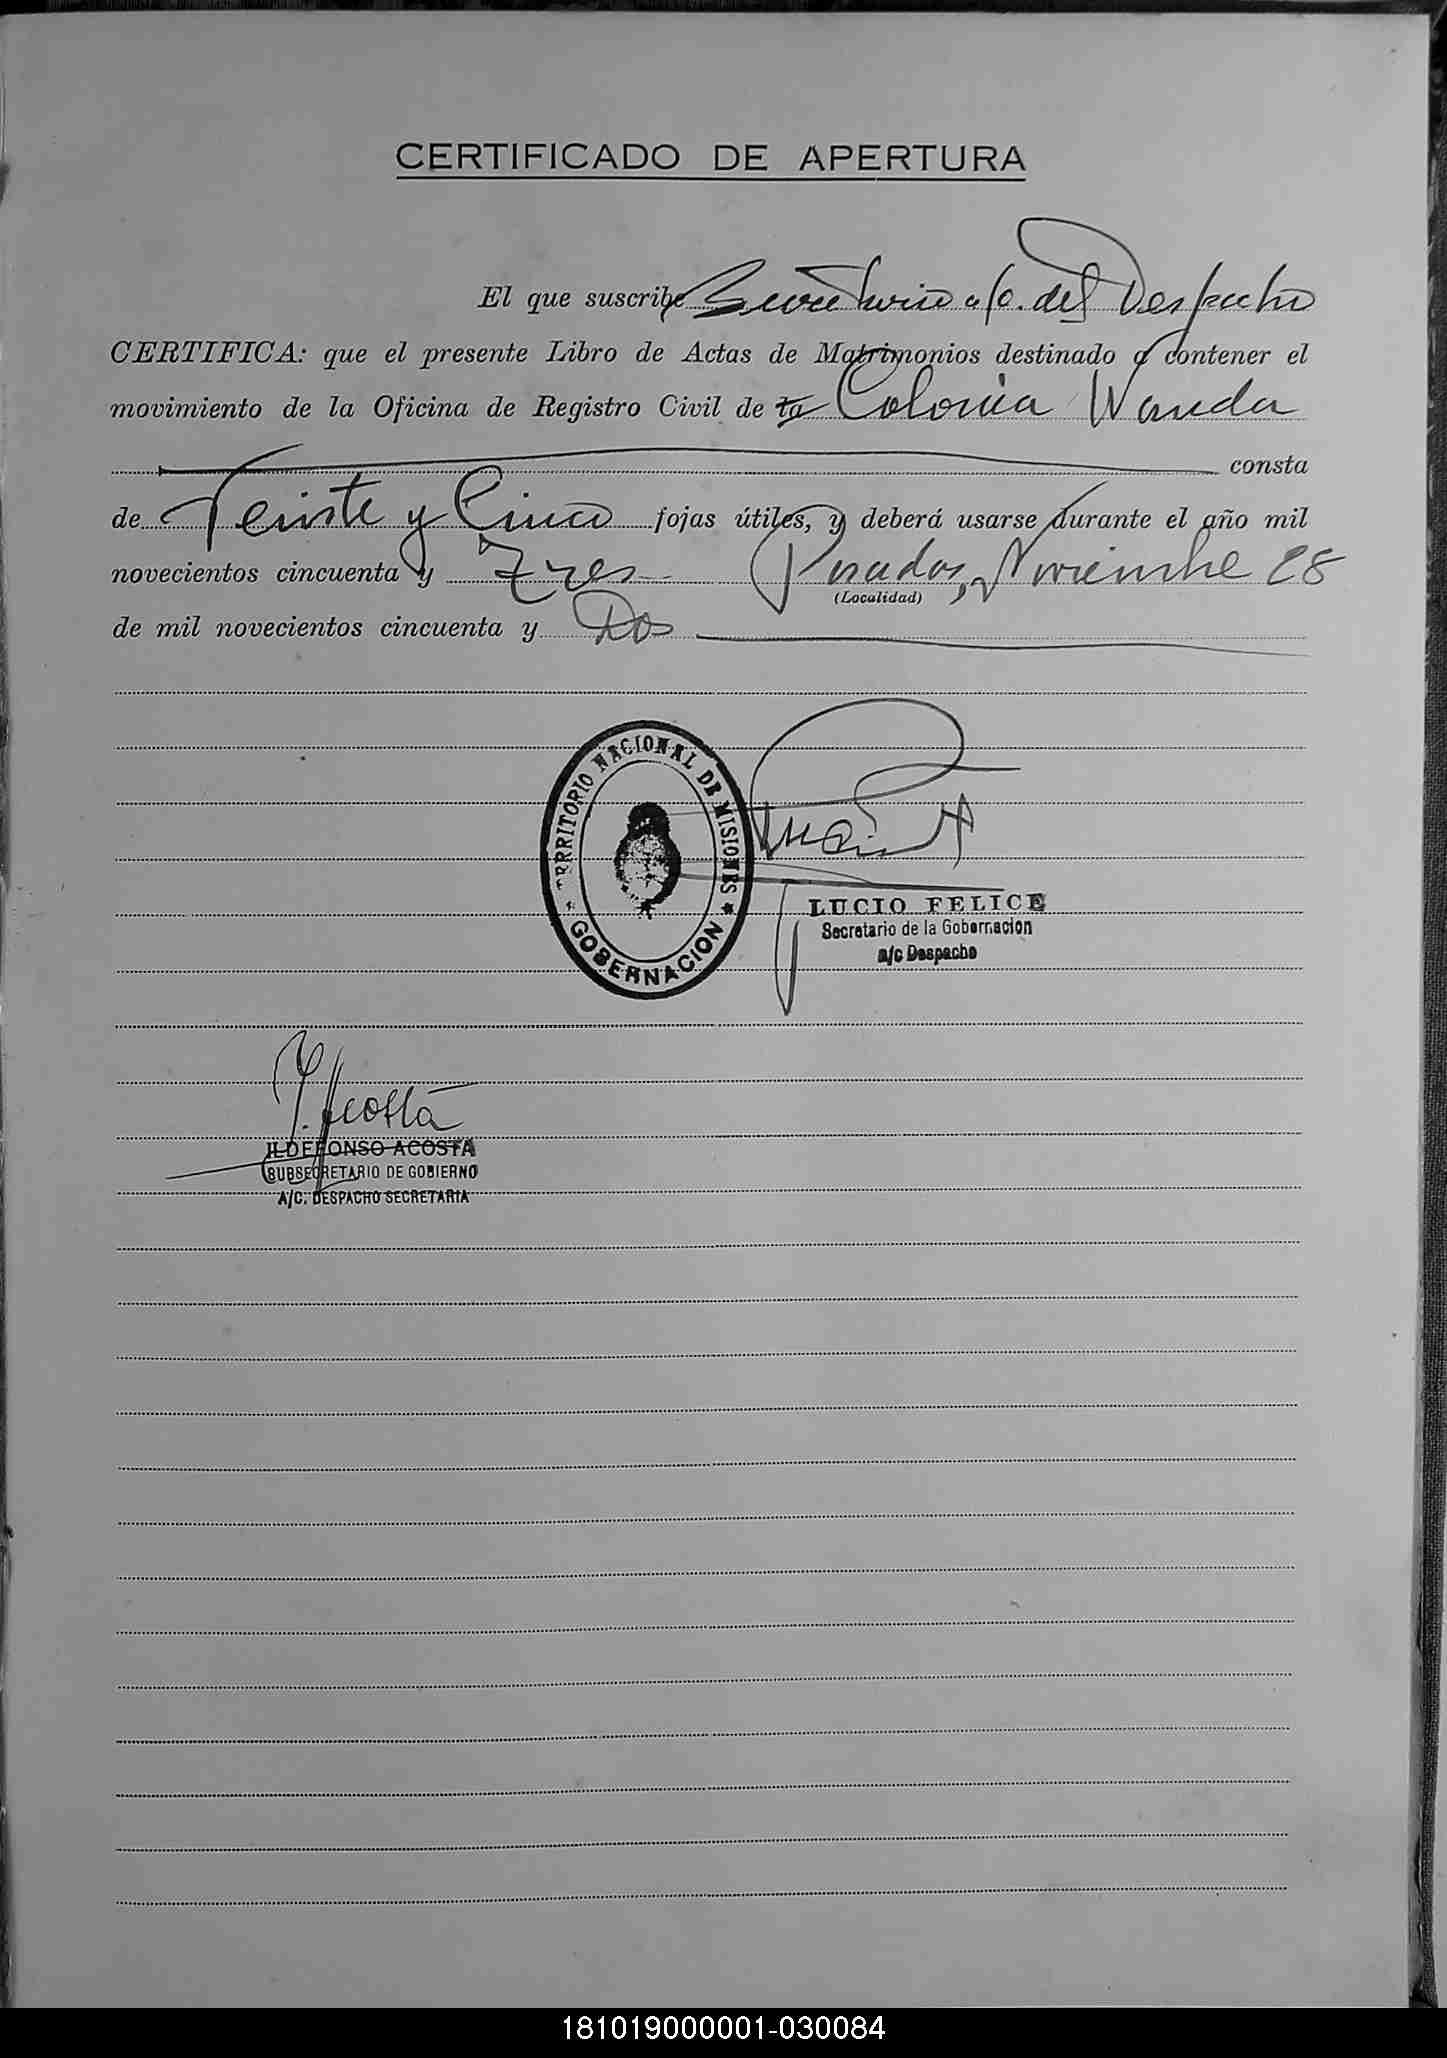 CERTIFICADO DE APERTURA
El que suscribe Secretario a/c. del Despacho
CERTIFICA: que el presente Libro de Actas de Matrimonios destinado a contener el
movimiento de la Oficina de Registro Civil de la Colonia Wanda
consta
de Veinte y Cinco fojas útiles, y deberá usarse durante el año mil
novecientos cincuenta y Tres Posadas, Noviembre 28
(Localidad)
de mil novecientos cincuenta y Dos
TERRITORIO NACIONAL DE MISIONES
* GOBERNACION *
LUCIO FELICE
Secretario de la Gobernacion
a/c Despacho
I. Acosta
ILDEFONSO ACOSTA
SUBSECRETARIO DE GOBIERNO
A/C. DESPACHO SECRETARIA
181019000001-030084